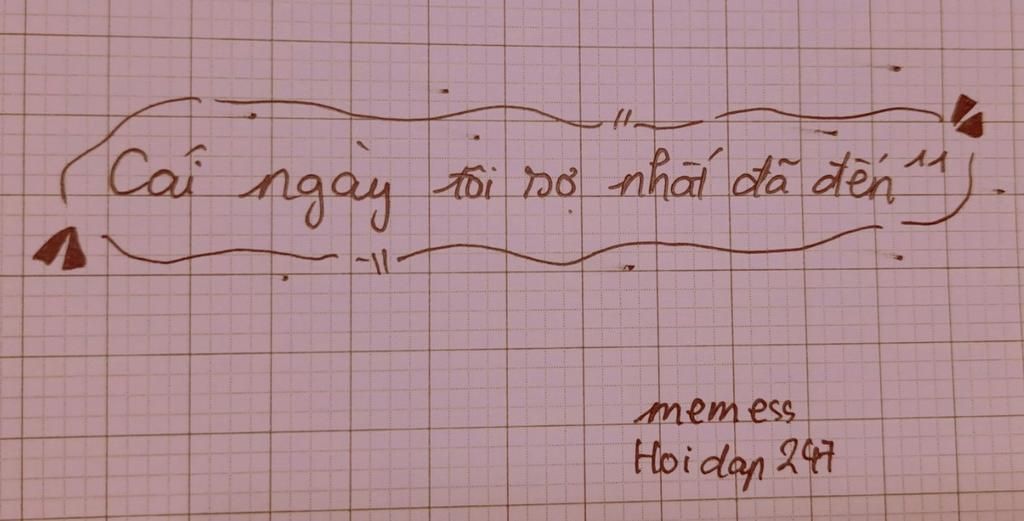 Cái ngày tôi sợ nhất đã đến"
memess
Hoidap247